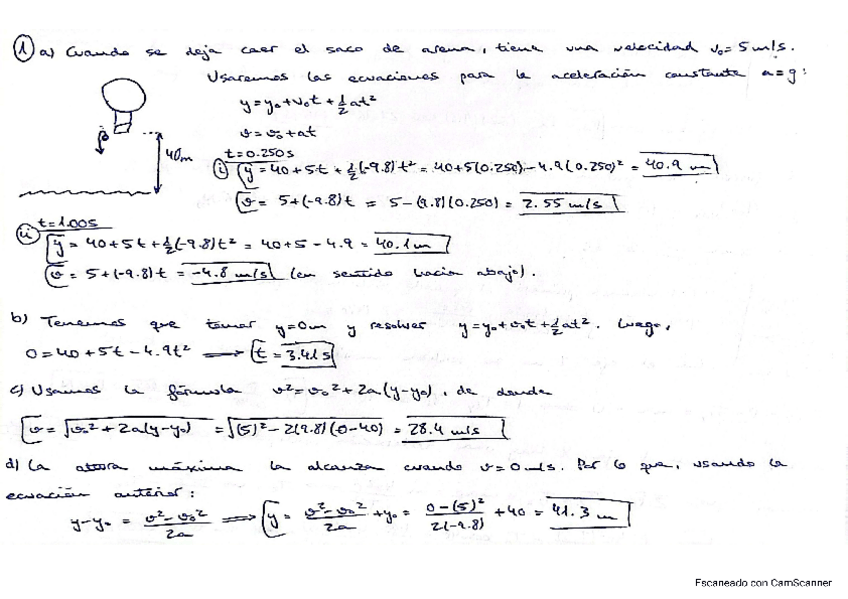 ① a) Cuando se deja caer el saco de arena, tiene una velocidad v₀ = 5 m/s.
Usaremos las ecuaciones para la aceleración constante a = g:
y = y₀ + v₀t + ½at²
v = v₀ + at
40m
t = 0.250 s
i) y = 40 + 5t + ½(-9.8)t² = 40 + 5(0.250) - 4.9(0.250)² = 40.9 m
v = 5 + (-9.8)t = 5 - (9.8)(0.250) = 2.55 m/s
t = 1.00 s
ii) y = 40 + 5t + ½(-9.8)t² = 40 + 5 - 4.9 = 40.1 m
v = 5 + (-9.8)t = -4.8 m/s (en sentido hacia abajo).
b) Tenemos que tomar y = 0 m y resolver y = y₀ + v₀t + ½at². Luego,
0 = 40 + 5t - 4.9t² ⟹ t = 3.41 s
c) Usamos la fórmula v² = v₀² + 2a(y-y₀), de donde
v = √(v₀² + 2a(y-y₀)) = √((5)² - 2(9.8)(0-40)) = 28.4 m/s
d) La altura máxima la alcanza cuando v = 0 m/s. Por lo que, usando la
ecuación anterior:
y - y₀ = (v² - v₀²)/2a ⟹ y = (v² - v₀²)/2a + y₀ = (0 - (5)²)/2(-9.8) + 40 = 41.3 m
Escaneado con CamScanner